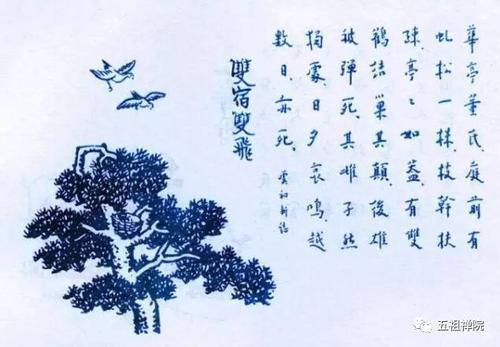 華亭董氏、庭前有
虬松一株、枝幹扶
疎、亭〻如蓋、有雙
鶴結巢其顛、後雄
被彈死、其雌孑然
獨處、日夕哀鳴、越
數日、亦死、
虞初新誌
雙宿雙飛
五祖禅院